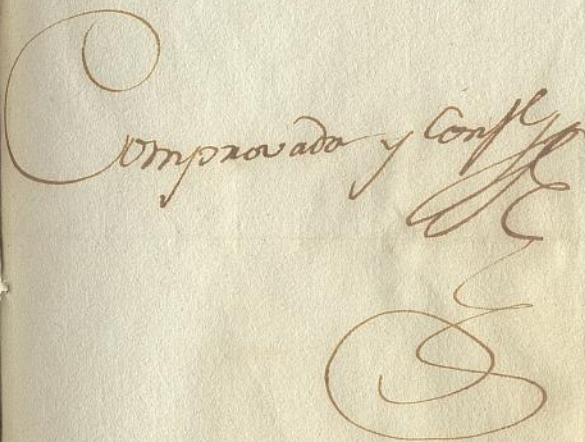 Comprovada y Conf